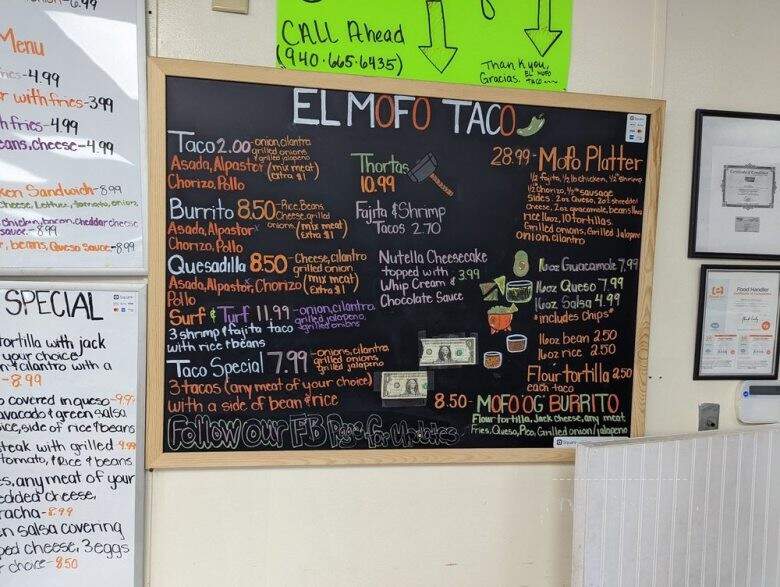 CALL Ahead
(940.665.6435)
Thank you,
Gracias. EL MOFO
TACO
Menu
-4.99
r with fries-3.99
h fries-4.99
eans, cheese-4.99
Sandwich-8.99
cheese, Lettuce, tomato, onion,
chicken, bacon, cheddar cheese
sauce.-8.99
, beans, Queso Sauce-8.99
SPECIAL
tortilla with jack
your choice
cilantro with a
-8.99
covered in queso-9.99
avacado & green salsa
side of rice & beans
steak with grilled 9.99
tomato, & Rice & beans
any meat of your
cheese,
racha-8.99
n salsa covering
ped cheese, 3 eggs
choice-8.50
EL MOFO TACO
Taco 2.00-onion, cilantro
grilled onions
grilled jalapeno
Asada, Alpastor (mix meat)
Chorizo, Pollo Extra $1
Burrito 8.50-Rice, Beans,
Cheese, grilled
onions
Asada, Alpastor (mix meat)
Chorizo, Pollo Extra $1
Quesadilla 8.50-Cheese, cilantro
grilled onion
Asada, Alpastor, Chorizo (mix meat)
Pollo Extra $1
Surf & Turf 11.99-onion, cilantro
grilled jalapeno,
grilled onions
3 shrimp & fajita taco
with rice & beans
Taco Special 7.99-onions, cilantro
grilled onions
grilled jalapeno
3 tacos (any meat of your choice)
with a side of bean & rice
Follow our FB Page for Updates
Thortas
10.99
Fajita & Shrimp
Tacos 2.70
Nutella Cheesecake
topped with 3.99
Whip Cream &
Chocolate Sauce
28.99-Mofo Platter
1/2 fajita, 1/2 lb chicken, 1/2 shrimp
1/2 chorizo, 1/2 sausage
sides: 2oz Queso, 2oz shredded
cheese, 2oz guacamole, beans 16oz
rice 16oz, 10 tortillas.
Grilled onions, Grilled Jalapeno
onion, cilantro
16oz Guacamole 7.99
16oz Queso 7.99
16oz Salsa 4.99
*includes Chips*
16oz bean 2.50
16oz rice 2.50
Flour tortilla 2.50
each taco
8.50-MOFO "OG" BURRITO
Flour tortilla, Jack cheese, any meat
Fries, Queso, Pico, Grilled onion/jalapeno
Food Handler